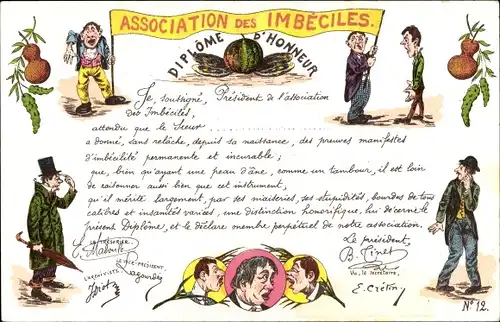 ASSOCIATION DES IMBÉCILES.
DIPLÔME D'HONNEUR
Je, soussigné, Président de l'association
des Imbéciles,
attendu que le Sieur
a donné, sans relâche, depuis sa naissance, des preuves manifestes
d'imbécilité permanente et incurable ;
que, bien qu'ayant une peau d'âne, comme un tambour, il est loin
de raisonner aussi bien que cet instrument,
qu'il mérite largement, par ses maiseries, ses stupidités, bourdes de tous
calibres et insanités variées, une distinction honorifique, lui décerne le
présent Diplôme, et le déclare membre perpétuel de notre association.
Le président,
B. Cinet
LE VICE-PRÉSIDENT,
Lagourdes
L'ARCHIVISTE
Vu, le Secrétaire,
E. Crétin
N° 12.